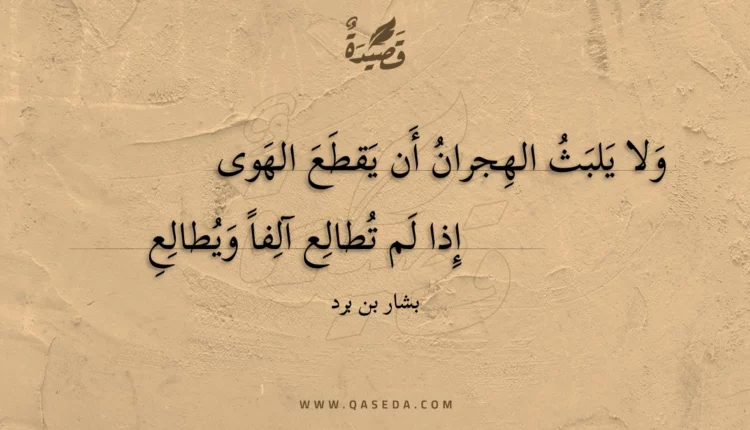 قَصِيدَةٌ
وَلا يَلبَثُ الهِجرانُ أَن يَقطَعَ الهَوى
إِذا لَم تُطالِع آلِفاً وَيُطالِعِ
بشار بن برد
WWW.QASEDA.COM